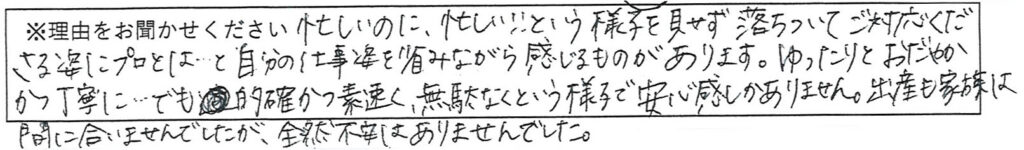 ※理由をお聞かせください 忙しいのに、忙しい!!という様子を見せず落ちついてご対応くだ
さる姿にプロとは…と自分の仕事姿を省みながら感じるものがあります。ゆったりとおだやか
かつ丁寧に…でも的確かつ素速く、無駄なくという様子で安心感しかありません。出産も家族は
間に合いませんでしたが、全然不安はありませんでした。